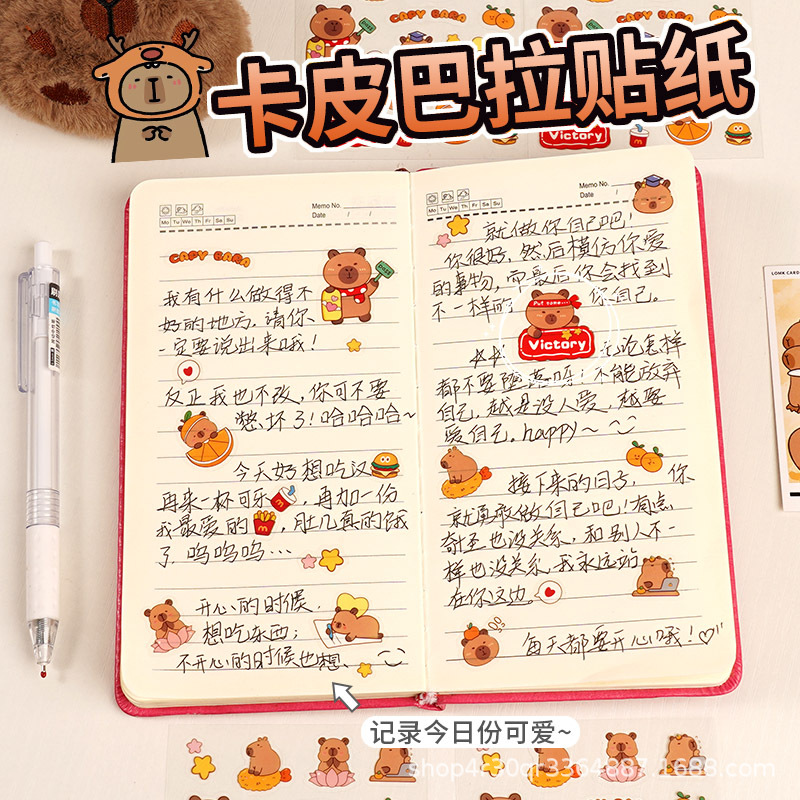 CAPY BARA
Victory
Victory
卡皮巴拉贴纸
Memo No.
Mo Tu We Th Fr Sa Su
Date / /
CAPY BARA
我有什么做得不
好的地方，请你、
一定要说出来哦！
反正我也不改，你可不要
憋坏了！哈哈哈~
今天好想吃汉
再来一杯可乐，再加一份
我最爱的，肚几真的饿
了，呜呜呜…
开心的时候，
想吃东西；
不开心的时候也想、
Memo No.
Mo Tu We Th Fr Sa Su
Date / /
就做你自己吧！
你很好，然后模仿你爱
的事物，而最后你会找到
不一样的 你自己。
Victory
无论怎样
都不要堕落呀！不能放弃
自己，越是没人爱，越要
爱自己。happy~
接下来的日子， 你
就勇敢做自己吧！有点
奇怪也没关系，和别人不一
样也没关系，我永远站
在你这边。
每天都要开心哦！
LOMK CARD
记录今日份可爱~